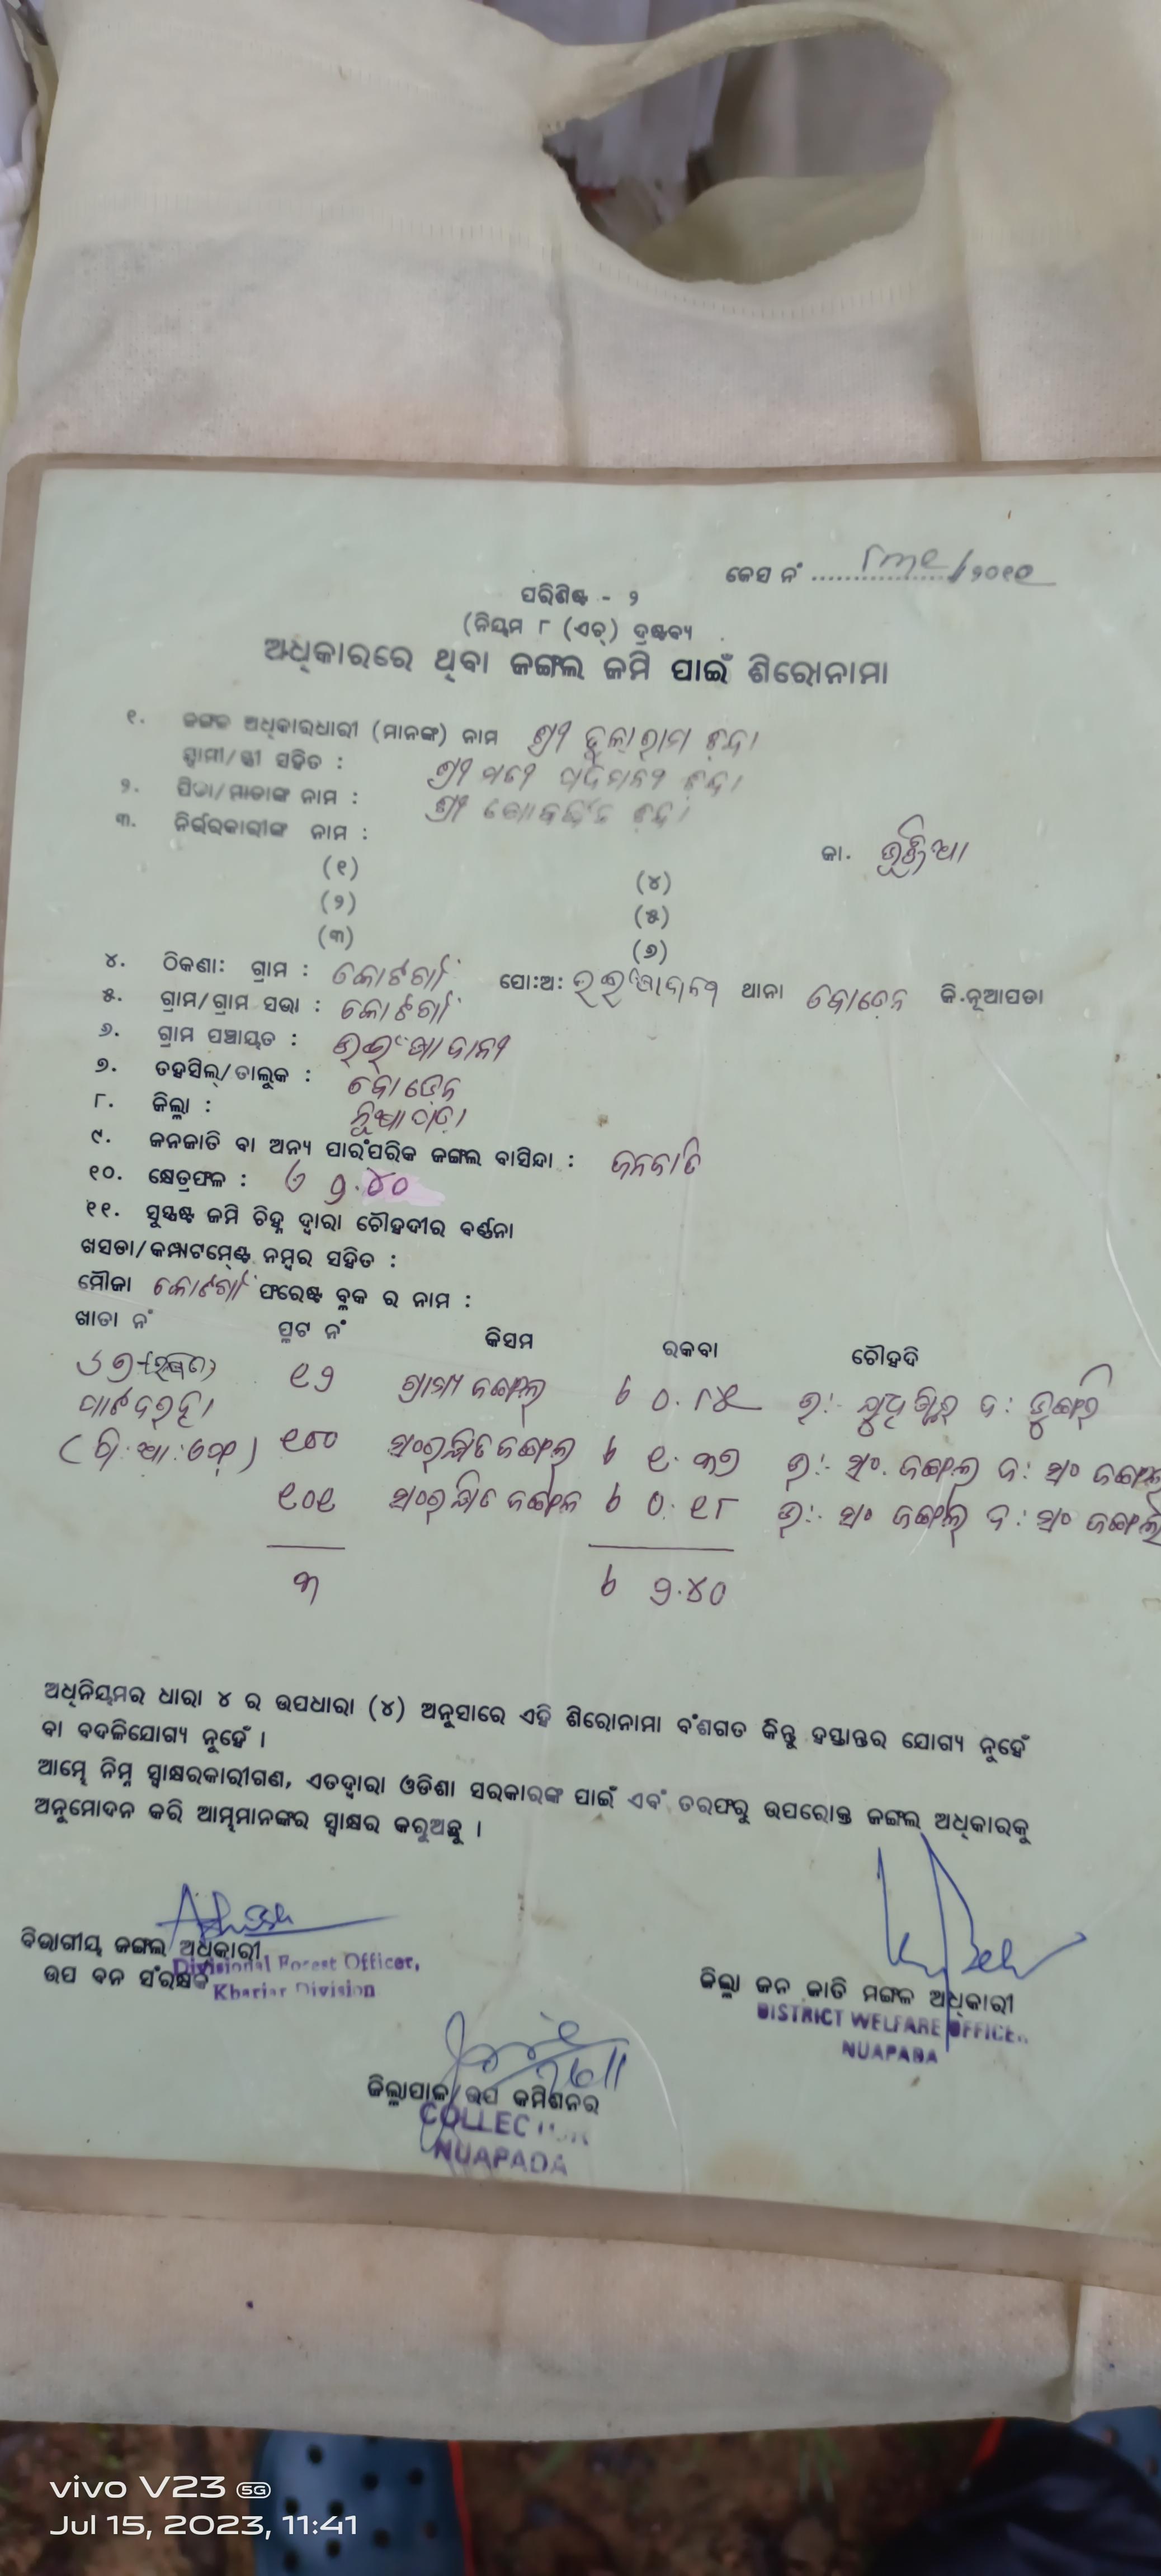 କେସ ନଂ ................ /୨୦୧୧
ପରିଶିଷ୍ଟ - ୨
(ନିୟମ ୮ (ଏଚ୍) ଦ୍ରଷ୍ଟବ୍ୟ
ଅଧିକାରରେ ଥିବା ଜଙ୍ଗଲ ଜମି ପାଇଁ ଶିରୋନାମା
୧. ଜଙ୍ଗଲ ଅଧିକାରଧାରୀ (ମାନଙ୍କ) ନାମ ଶ୍ରୀ ତୁଳାରାମ ଛନ୍ଦା
ସ୍ୱାମୀ/ସ୍ତ୍ରୀ ସହିତ : ଶ୍ରୀମତୀ
୨. ପିତା/ମାତାଙ୍କ ନାମ : ଶ୍ରୀ
୩. ନିର୍ଭରକାରୀଙ୍କ ନାମ :
ଜା. ଭୁଞ୍ଜିଆ
(୧) (୪)
(୨) (୫)
(୩) (୬)
୪. ଠିକଣା: ଗ୍ରାମ : କୋଟଗାଁ ପୋ:ଅ: ଥାନା ବୋଡ଼େନ ଜି.ନୂଆପଡା
୫. ଗ୍ରାମ/ଗ୍ରାମ ସଭା : କୋଟଗାଁ
୬. ଗ୍ରାମ ପଞ୍ଚାୟତ :
୭. ତହସିଲ୍/ତାଲୁକ : ବୋଡ଼େନ
୮. ଜିଲ୍ଲା : ନୂଆପଡ଼ା
୯. ଜନଜାତି ବା ଅନ୍ୟ ପାରଂପରିକ ଜଙ୍ଗଲ ବାସିନ୍ଦା : ଜନଜାତି
୧୦. କ୍ଷେତ୍ରଫଳ : ୨.୪୦
୧୧. ସୁସ୍ପଷ୍ଟ ଜମି ଚିହ୍ନ ଦ୍ୱାରା ଚୌହଦୀର ବର୍ଣ୍ଣନା
ଖସଡା/କମ୍ପାଟମେଣ୍ଟ ନମ୍ବର ସହିତ :
ମୌଜା କୋଟଗାଁ ଫରେଷ୍ଟ ବ୍ଲକ ର ନାମ :
ଖାତା ନଂ ପ୍ଲଟ ନଂ କିସମ ରକବା ଚୌହଦି
୧୨ ଗ୍ରାମ୍ୟ ଜଙ୍ଗଲ ୦.୮୪ ଉ:- ଯୁଧିଷ୍ଠିର ଦ: ଡୁଙ୍ଗରି
ସଂରକ୍ଷିତ ଜଙ୍ଗଲ ଉ:- ସଂ. ଜଙ୍ଗଲ ଦ: ସଂ ଜଙ୍ଗଲ
୧୦୧ ସଂରକ୍ଷିତ ଜଙ୍ଗଲ ୦.୧୮ ଉ:- ସଂ ଜଙ୍ଗଲ ଦ: ସଂ ଜଙ୍ଗଲ
୩ ୨.୪୦
ଅଧିନିୟମର ଧାରା ୪ ର ଉପଧାରା (୪) ଅନୁସାରେ ଏହି ଶିରୋନାମା ବଂଶଗତ କିନ୍ତୁ ହସ୍ତାନ୍ତର ଯୋଗ୍ୟ ନୁହେଁ
ବା ବଦଳିଯୋଗ୍ୟ ନୁହେଁ ।
ଆମ୍ଭେ ନିମ୍ନ ସ୍ୱାକ୍ଷରକାରୀଗଣ, ଏତଦ୍ୱାରା ଓଡିଶା ସରକାରଙ୍କ ପାଇଁ ଏବଂ ତରଫରୁ ଉପରୋକ୍ତ ଜଙ୍ଗଲ ଅଧିକାରକୁ
ଅନୁମୋଦନ କରି ଆମ୍ଭମାନଙ୍କର ସ୍ୱାକ୍ଷର କରୁଅଛୁ ।
ବିଭାଗୀୟ ଜଙ୍ଗଲ ଅଧିକାରୀ
ଉପ ବନ ସଂରକ୍ଷକ
Divisional Forest Officer,
Khariar Division
ଜିଲ୍ଲା ଜନ ଜାତି ମଙ୍ଗଳ ଅଧିକାରୀ
DISTRICT WELFARE OFFICER
NUAPADA
ଜିଲ୍ଲାପାଳ/ଉପ କମିଶନର
COLLECTOR
NUAPADA
vivo V23 5G
Jul 15, 2023, 11:41